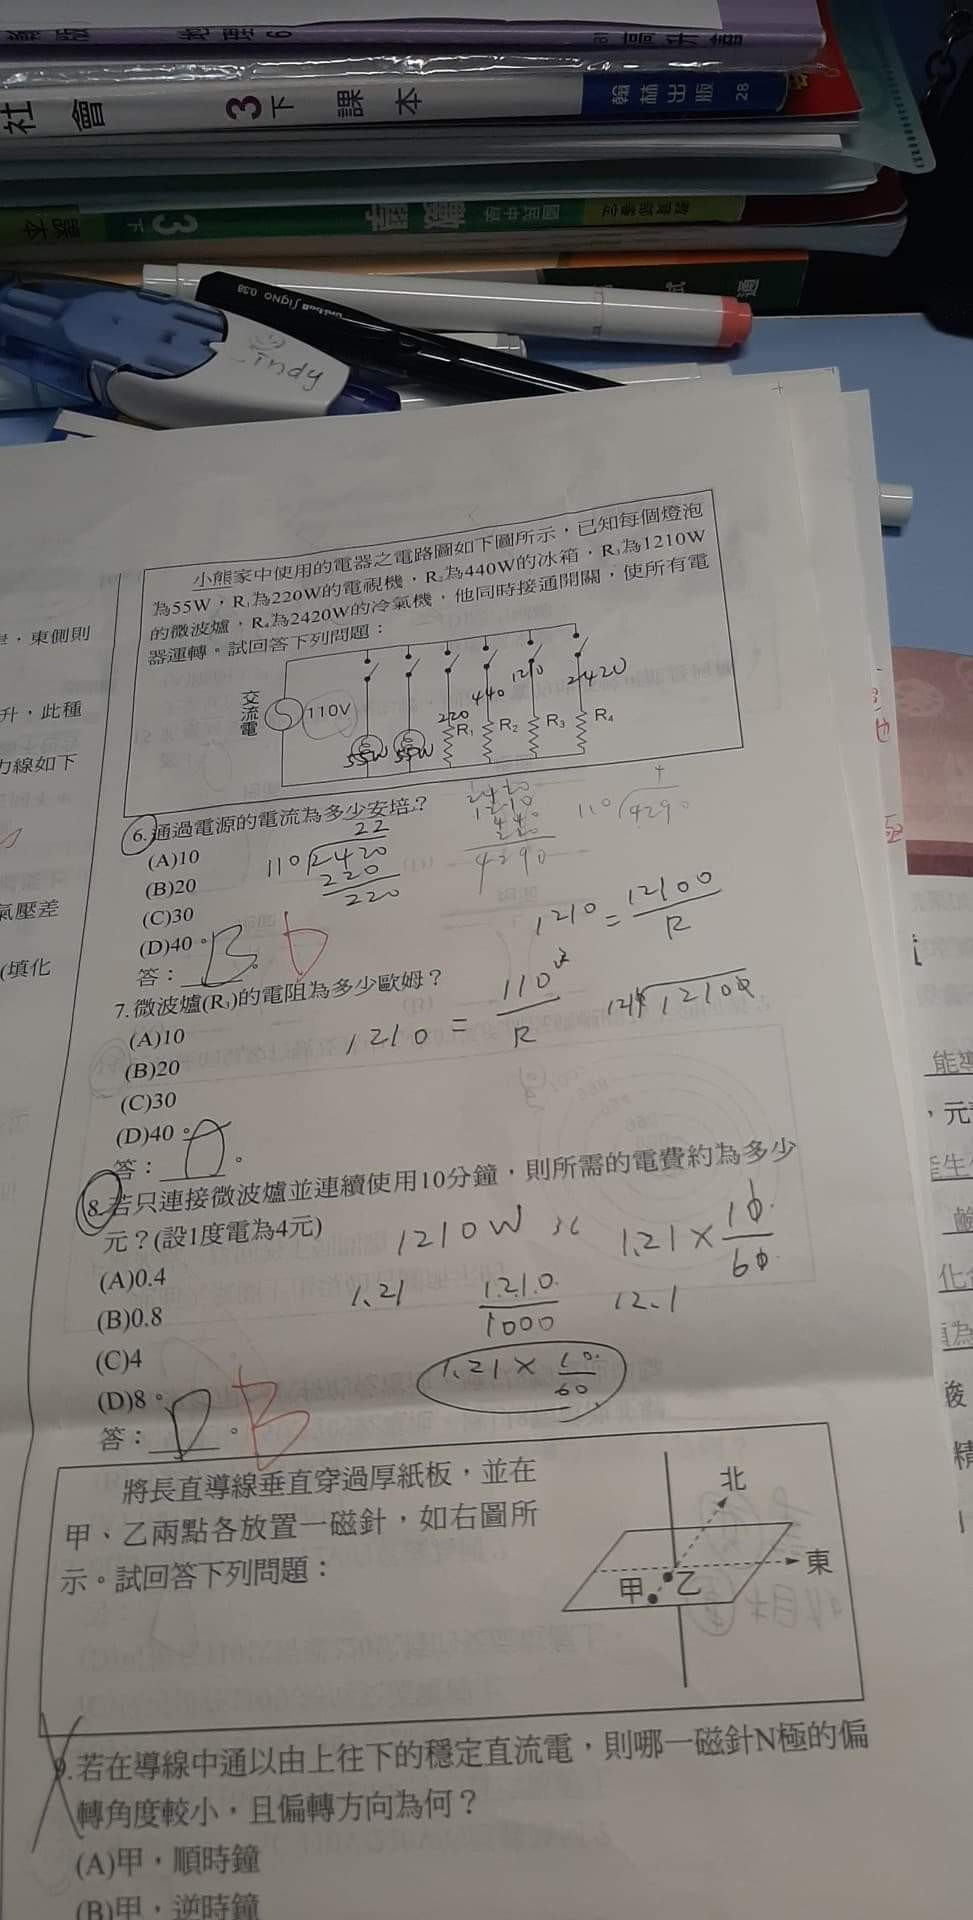 社會 3下 課本 翰林出版 28
3下
國民中學
uniball Signo 0.38
indy
小熊家中使用的電器之電路圖如下圖所示,已知每個燈泡
為55W,R₁為220W的電視機,R₂為440W的冰箱,R₃為1210W
的微波爐,R₄為2420W的冷氣機,他同時接通開關,使所有電
器運轉。試回答下列問題:
交流電
110V
55W 55W
220 440 1210 2420
R₁ R₂ R₃ R₄
6.通過電源的電流為多少安培?
(A)10
(B)20
(C)30
(D)40。
答: B 。 D
22
110 2420
220
220
2420
1210
440
220
4290
110 4290
1210 = 12100/R
7.微波爐(R₃)的電阻為多少歐姆?
(A)10
(B)20
(C)30
(D)40。
答: A 。
1210 = 110²/R
8.若只連接微波爐並連續使用10分鐘,則所需的電費約為多少
元?(設1度電為4元)
(A)0.4
(B)0.8
(C)4
(D)8。
答: D 。 B
1210W
1.21 × 10/60
1.21
1210/1000
12.1
1.21 × 10/60
將長直導線垂直穿過厚紙板,並在
甲、乙兩點各放置一磁針,如右圖所
示。試回答下列問題:
北
東
甲 乙
9.若在導線中通以由上往下的穩定直流電,則哪一磁針N極的偏
轉角度較小,且偏轉方向為何?
(A)甲,順時鐘
(B)甲,逆時鐘
,東側則
升,此種
力線如下
氣壓差
(填化
能導
,元